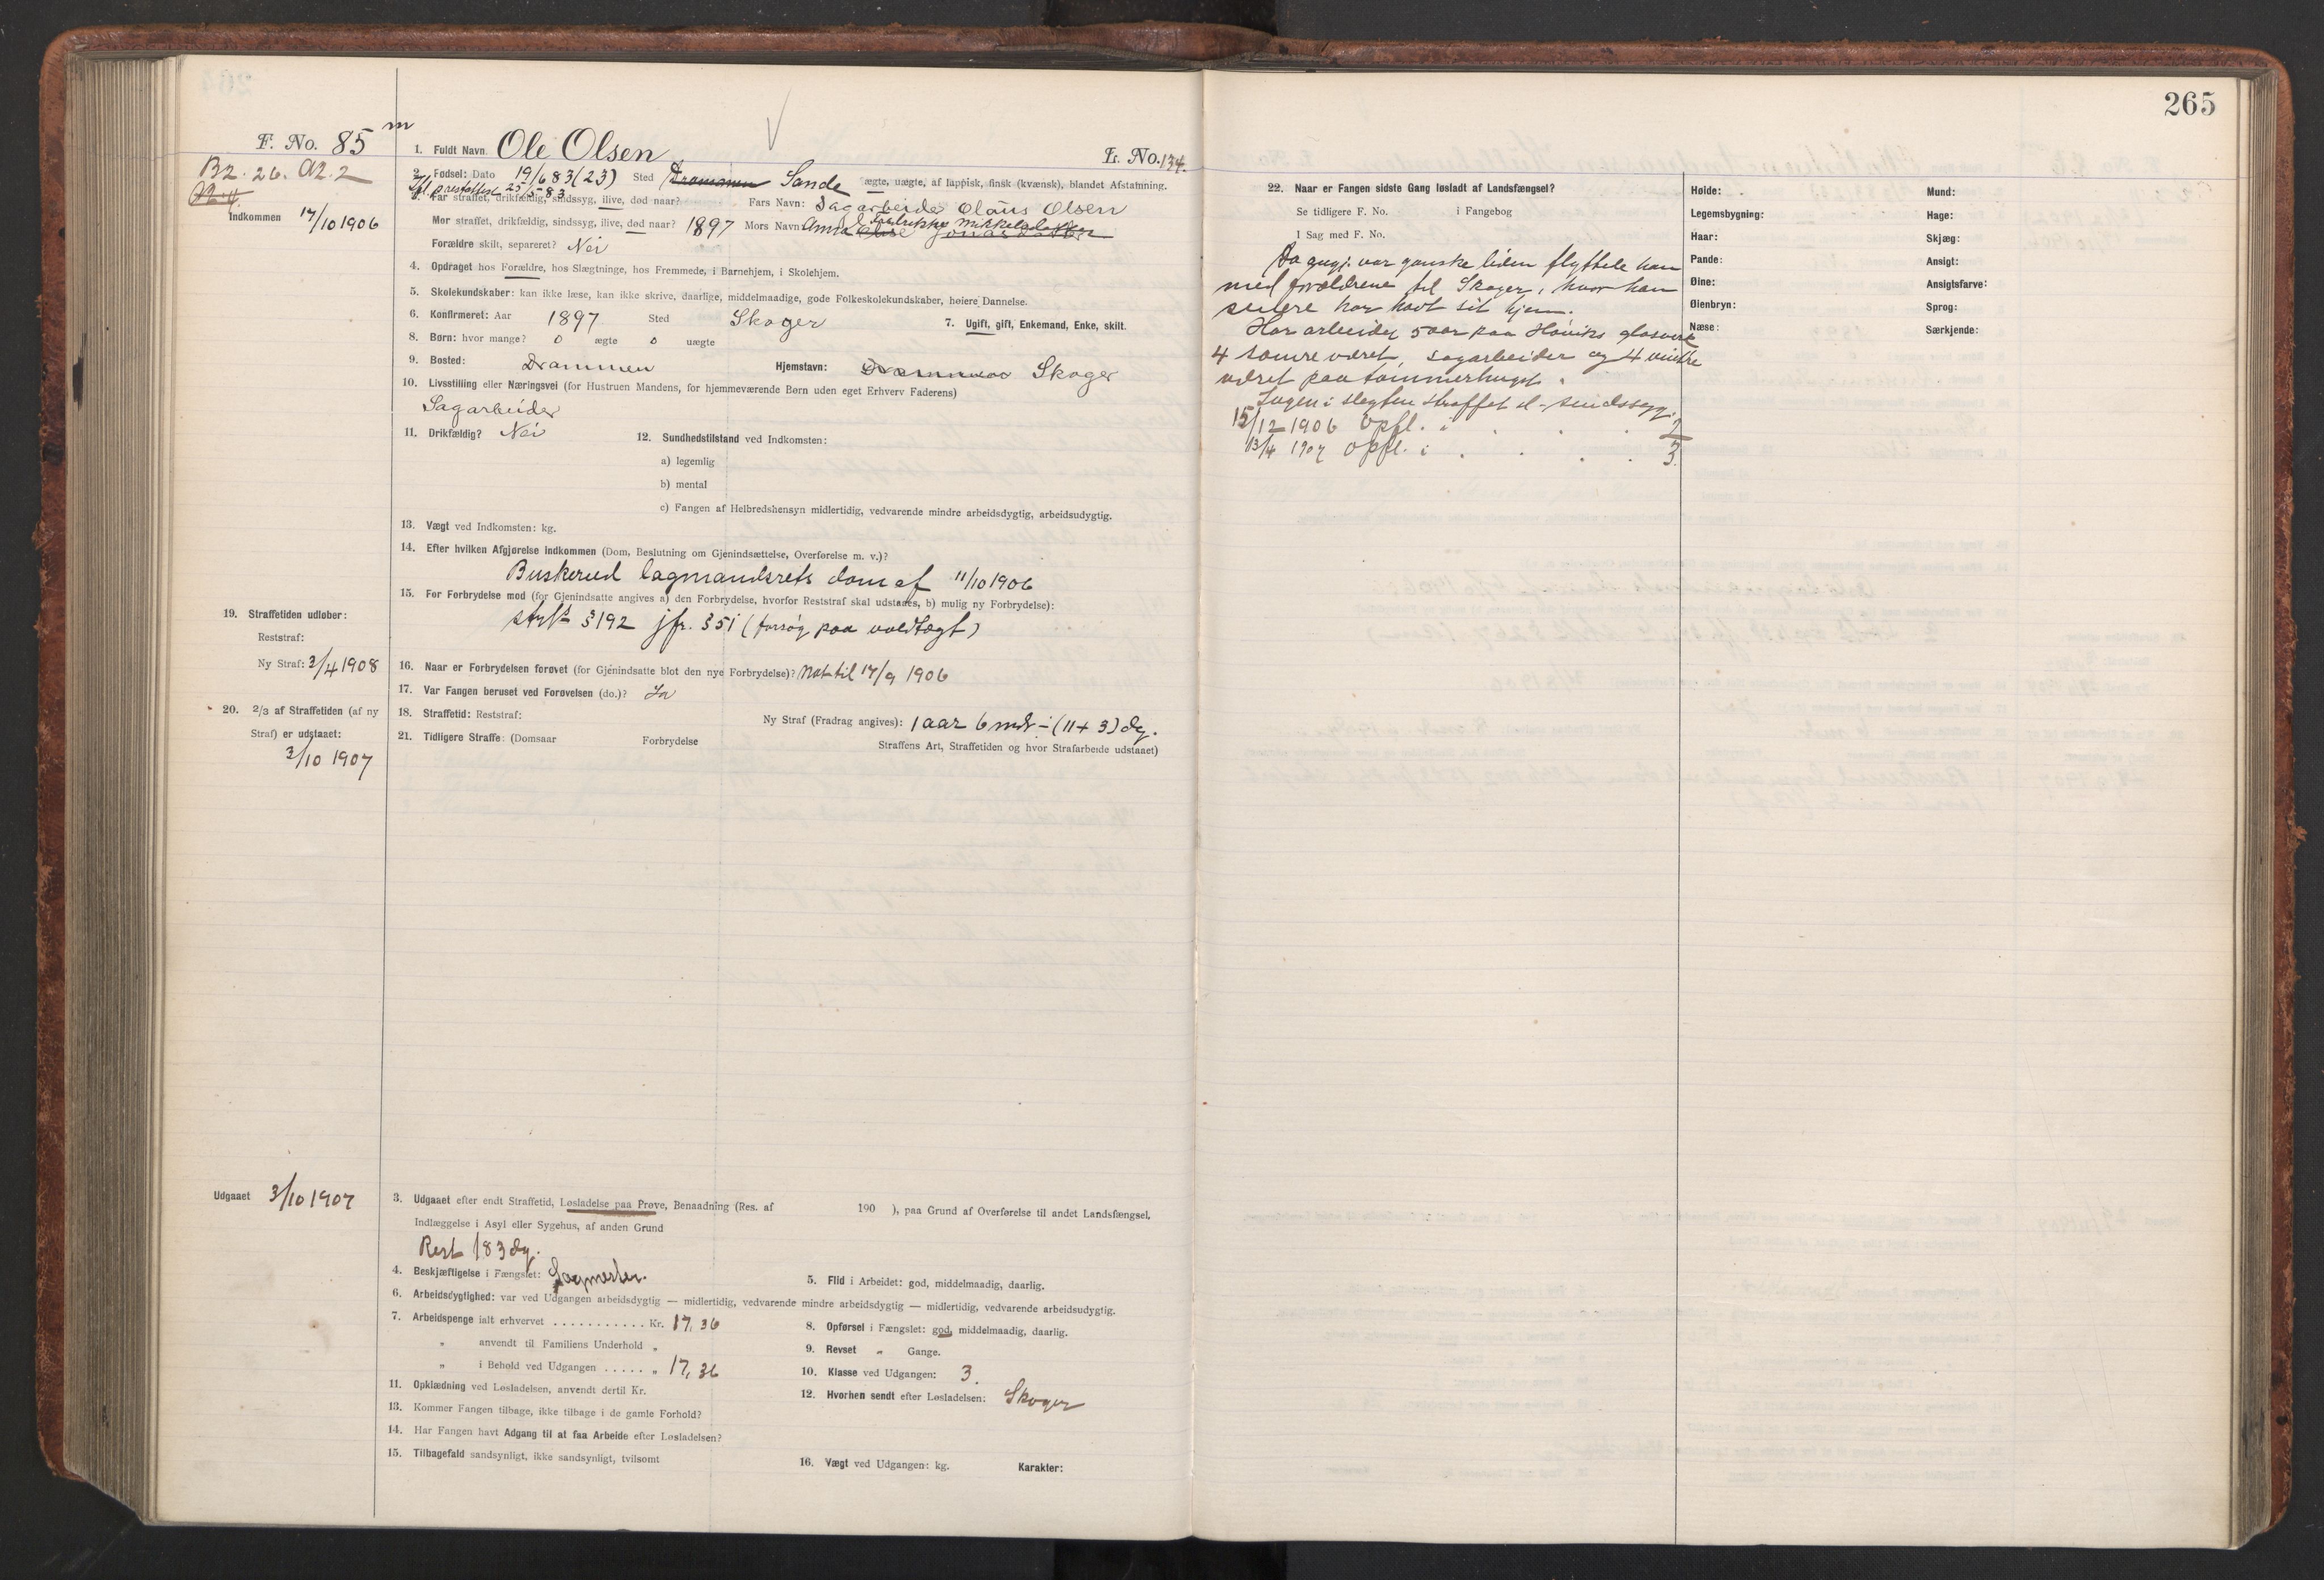 265
F. No. 85 m
B2. 26. A2. 2
Indkommen 17/10 1906
1. Fuldt Navn Ole Olsen
L. No. 134.
2. Fødsel: Dato 19/6 83 (23) Sted Drammen Sande ægte, uægte, af lappisk, finsk (kvænsk), blandet Afstamning.
Ifl. præsteattest 25/5 83
3. Far straffet, drikfældig, sindssyg, ilive, død naar? Fars Navn: Sagarbeider Olaus Olsen
Mor straffet, drikfældig, sindssyg, ilive, død naar? 1897 Mors Navn Anna Fredrikke Mikkelsdatter
Forældre skilt, separeret? Nei
4. Opdraget hos Forældre, hos Slægtninge, hos Fremmede, i Barnehjem, i Skolehjem.
5. Skolekundskaber: kan ikke læse, kan ikke skrive, daarlige, middelmaadige, gode Folkeskolekundskaber, høiere Dannelse.
6. Konfirmeret: Aar 1897 Sted Skoger 7. Ugift, gift, Enkemand, Enke, skilt.
8. Børn: hvor mange? 0 ægte 0 uægte
9. Bosted: Drammen Hjemstavn: Drammen Skoger
10. Livsstilling eller Næringsvei (for Hustruen Mandens, for hjemmeværende Børn uden eget Erhverv Faderens)
Sagarbeider
11. Drikfældig? Nei 12. Sundhedstilstand ved Indkomsten:
a) legemlig
b) mental
c) Fangen af Helbredshensyn midlertidig, vedvarende mindre arbeidsdygtig, arbeidsudygtig.
13. Vægt ved Indkomsten: kg.
14. Efter hvilken Afgjørelse indkommen (Dom, Beslutning om Gjenindsættelse, Overførelse m. v.)?
Buskerud lagmandsrets dom af 11/10 1906
15. For Forbrydelse mod (for Gjenindsatte angives a) den Forbrydelse, hvorfor Reststraf skal udstaaes, b) mulig ny Forbrydelse):
strfl §192 jfr. §51 (forsøg paa voldtægt)
19. Straffetiden udløber:
Reststraf:
Ny Straf: 3/4 1908
16. Naar er Forbrydelsen forøvet (for Gjenindsatte blot den nye Forbrydelse)? Nat til 17/9 1906
17. Var Fangen beruset ved Forøvelsen (do.)? Ja
20. 2/3 af Straffetiden (af ny
Straf) er udstaaet:
3/10 1907
18. Straffetid: Reststraf: Ny Straf (Fradrag angives): 1 aar 6 mdr ÷ (11 + 3) dg.
21. Tidligere Straffe: (Domsaar Forbrydelse Straffens Art, Straffetiden og hvor Strafarbeide udstaaet)
Udgaaet 3/10 1907
3. Udgaaet efter endt Straffetid, Løsladelse paa Prøve, Benaadning (Res. af 190 ), paa Grund af Overførelse til andet Landsfængsel,
Indlæggelse i Asyl eller Sygehus, af anden Grund
Rest 183 dg.
4. Beskjæftigelse i Fængslet: 5. Flid i Arbeidet: god, middelmaadig, daarlig.
6. Arbeidsdygtighed: var ved Udgangen arbeidsdygtig — midlertidig, vedvarende mindre arbeidsdygtig — midlertidig, vedvarende arbeidsudygtig.
7. Arbeidspenge ialt erhvervet ........... Kr. 17,36 8. Opførsel i Fængslet: god, middelmaadig, daarlig.
„ anvendt til Familiens Underhold „ 9. Revset „ Gange.
„ i Behold ved Udgangen ..... „ 17,36 10. Klasse ved Udgangen: 3.
11. Opklædning ved Løsladelsen, anvendt dertil Kr. 12. Hvorhen sendt efter Løsladelsen: Skoger
13. Kommer Fangen tilbage, ikke tilbage i de gamle Forhold?
14. Har Fangen havt Adgang til at faa Arbeide efter Løsladelsen?
15. Tilbagefald sandsynligt, ikke sandsynligt, tvilsomt 16. Vægt ved Udgangen: kg. Karakter:
22. Naar er Fangen sidste Gang løsladt af Landsfængsel?
Se tidligere F. No. i Fangebog
I Sag med F. No.
Da angj. var ganske liden flyttede han
med forældrene til Skoger, hvor han
senere har havt sit hjem.
Har arbeidet 5 aar paa Høviks glasverk
4 somre været sagarbeider og 4 vintre
været paa tømmerhugst.
Ingen i slegten straffet el. sindssyg.
15/12 1906 Opfl. i . . . 2
13/4 1907 Opfl. i . . . 3.
Høide: Mund:
Legemsbygning: Hage:
Haar: Skjæg:
Pande: Ansigt:
Øine: Ansigtsfarve:
Øienbryn: Sprog:
Næse: Særkjende: